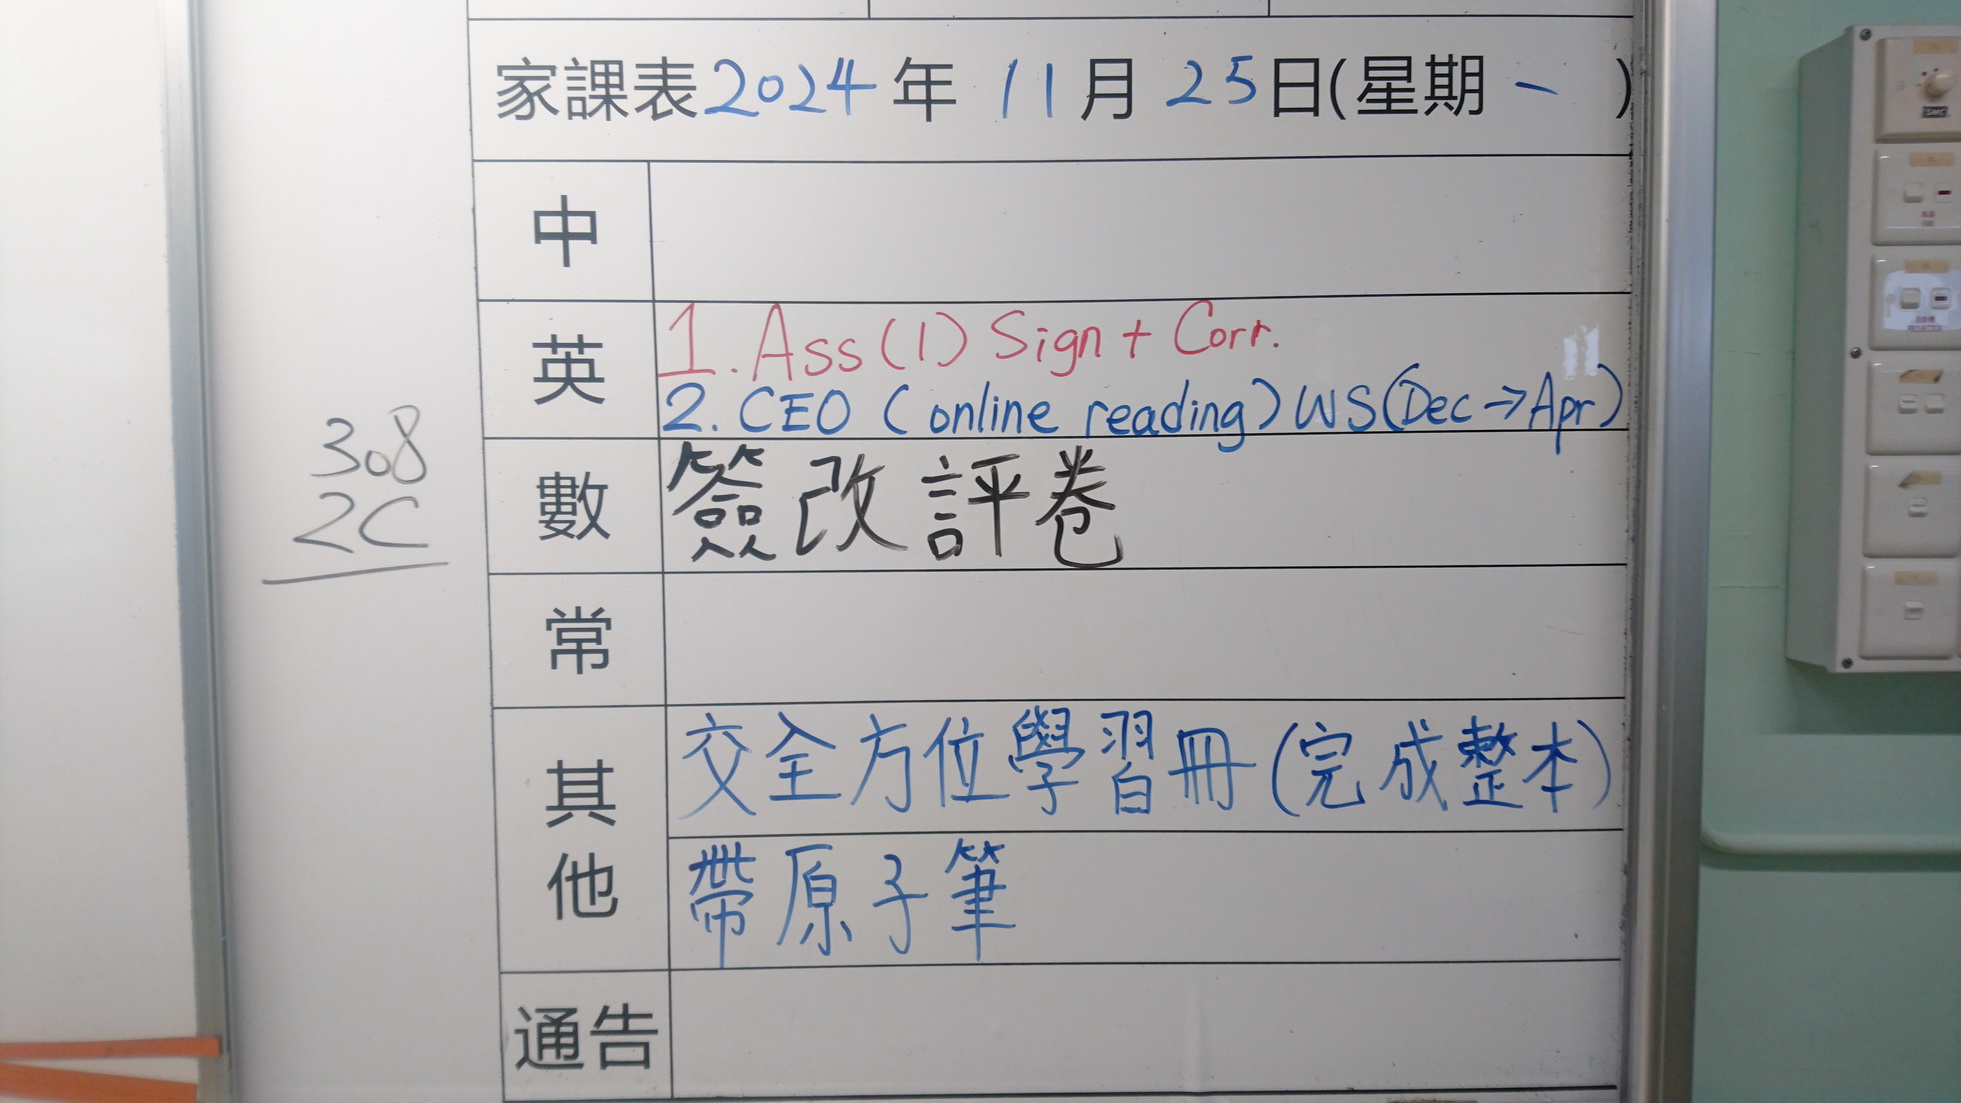 家課表2024年 11月 25日(星期一 )
308
2C
中
英
1. Ass (1) Sign + Corr.
2. CEO (online reading) WS (Dec → Apr)
數
簽改評卷
常
其他
交全方位學習冊(完成整本)
帶原子筆
通告